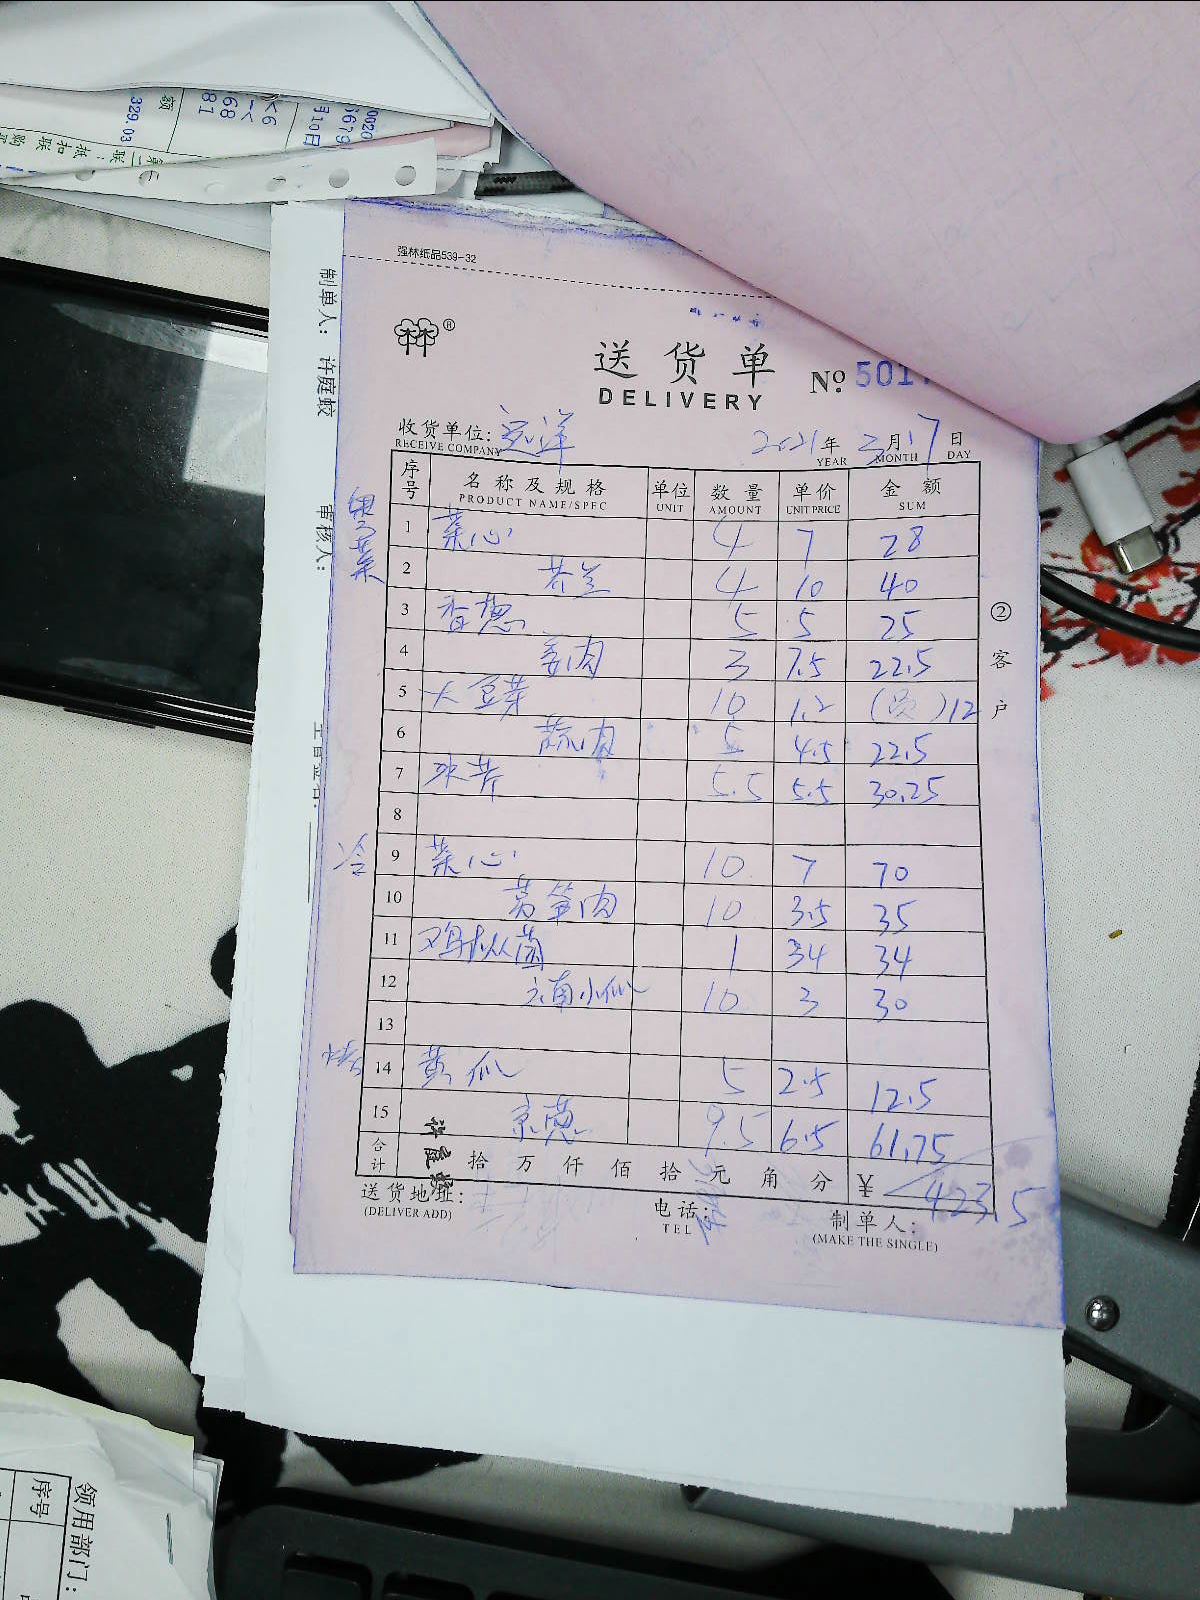 强林纸品539-32
送货单
DELIVERY
№ 501
收货单位: 远洋
RECEIVE COMPANY
2021年 3月 17日
YEAR MONTH DAY
序号 名称及规格 单位 数量 单价 金额
PRODUCT NAME/SPEC UNIT AMOUNT UNIT PRICE SUM
1 菜心 4 7 28
2 芥兰 4 10 40
3 香葱 5 5 25
4 姜肉 3 7.5 22.5
5 大豆芽 10 1.2 12
6 蒜肉 5 4.5 22.5
7 5.5 5.5 30.25
8
9 菜心 10 7 70
10 莴笋肉 10 3.5 35
11 鸡枞菌 1 34 34
12 云南小瓜 10 3 30
13
14 黄瓜 5 2.5 12.5
15 京葱 9.5 6.5 61.75
合计 拾 万 仟 佰 拾 元 角 分 ¥ 423.5
送货地址:
(DELIVER ADD)
电话:
TEL
制单人:
(MAKE THE SINGLE)
②客户
冷
制单人: 许庭蛟
审核人:
329.03
额
领用部门:
序号